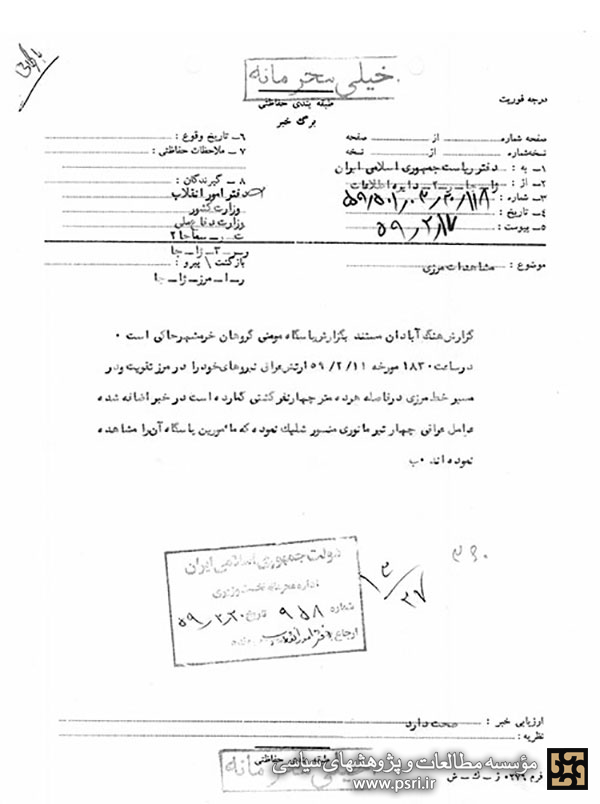 بایگانی
خیلی محرمانه
طبقه بندی حفاظتی
درجه فوریت
برگ خبر
صفحه شماره از صفحه
نسخه شماره از نسخه
۱- به : دفتر ریاست جمهوری اسلامی ایران
۲- از : ژاجا ـ ۲ ـ دایره اطلاعات
۳- شماره :
۴- تاریخ : ۵۹/۲/۱۷
۵- پیوست :
۶- تاریخ وقوع :
۷- ملاحظات حفاظتی :
۸- گیرندگان :
دفتر امور انقلاب
وزارت کشور
وزارت دفاع ملی
ر ـ ۳ ـ ژاجا
بازگشت / پیرو :
ر ـ ا ـ مرز ـ ژ ـ جا
موضوع : مشاهدات مرزی
گزارش هنگ آبادان مستند بگزارش پاسگاه مومنی گروهان خرمشهر حاکی است ۰
در ساعت ۱۸۳۰ مورخه ۵۹/۲/۱۱ ارتش عراقی نیروهای خود را در مرز تقویت و در
مسیر خط مرزی در فاصله هر ده متر چهار نفر گشتی گمارده است در خبر اضافه شده
عوامل عراقی چهار تیر مانوری منور شلیک نموده که مامورین پاسگاه آن را مشاهده
نموده اند ۰ب
دولت جمهوری اسلامی ایران
اداره محرمانه نخست وزیری
شماره ۹۵۸ تاریخ ۵۹/۲/۲۰
ارجاع به دفتر امور انقلاب
۳۶۰
۱۳/۳۷
ارزیابی خبر : صحت دارد
نظریه :
طبقه بندی حفاظتی
خیلی محرمانه
فرم ۰۲۷۶ ژ ـ ک ـ ش
مؤسسه مطالعات و پژوهشهای سیاسی
www.psri.ir